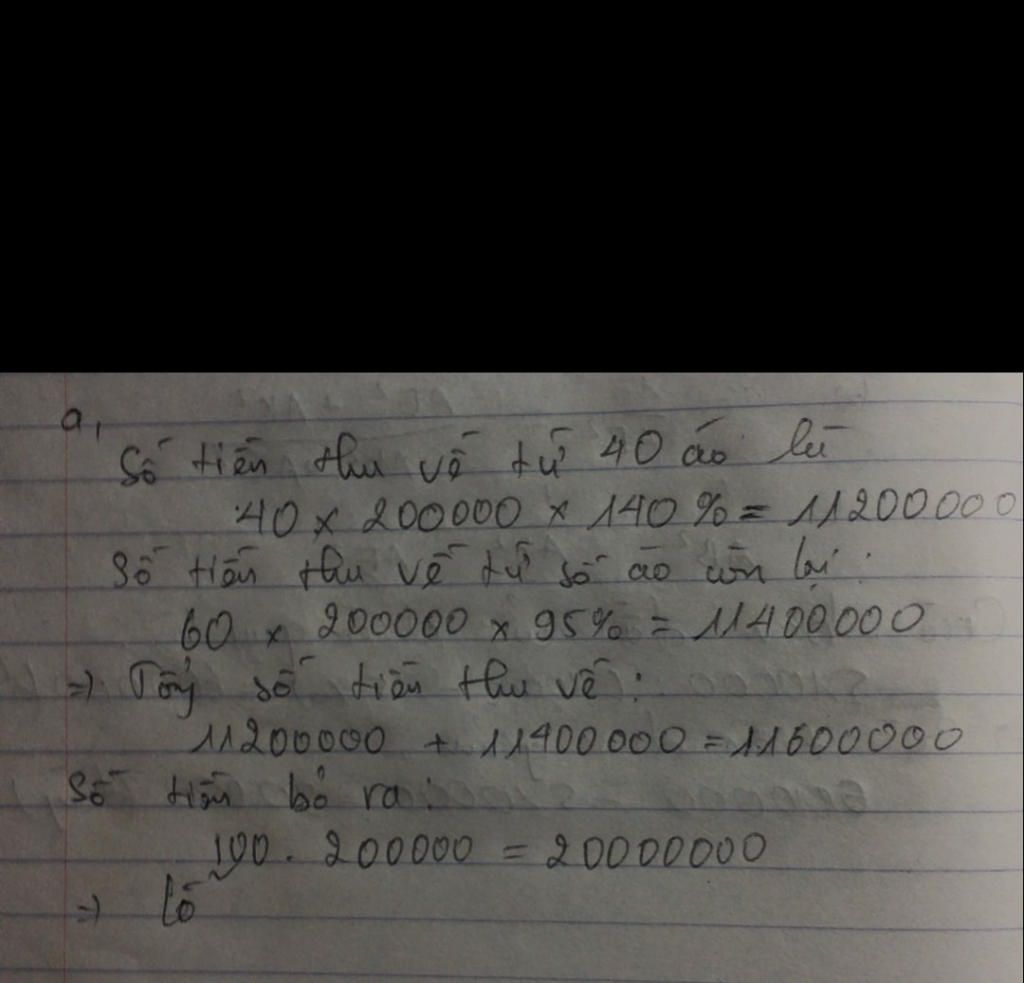 a,
Số tiền thu về từ 40 áo là
40 x 200000 x 140% = 11200000
Số tiền thu về từ số áo còn lại:
60 x 200000 x 95% = 11400000
=) Tổng số tiền thu về:
11200000 + 11400000 = 11600000
Số tiền bỏ ra:
100. 200000 = 20000000
=) Lỗ